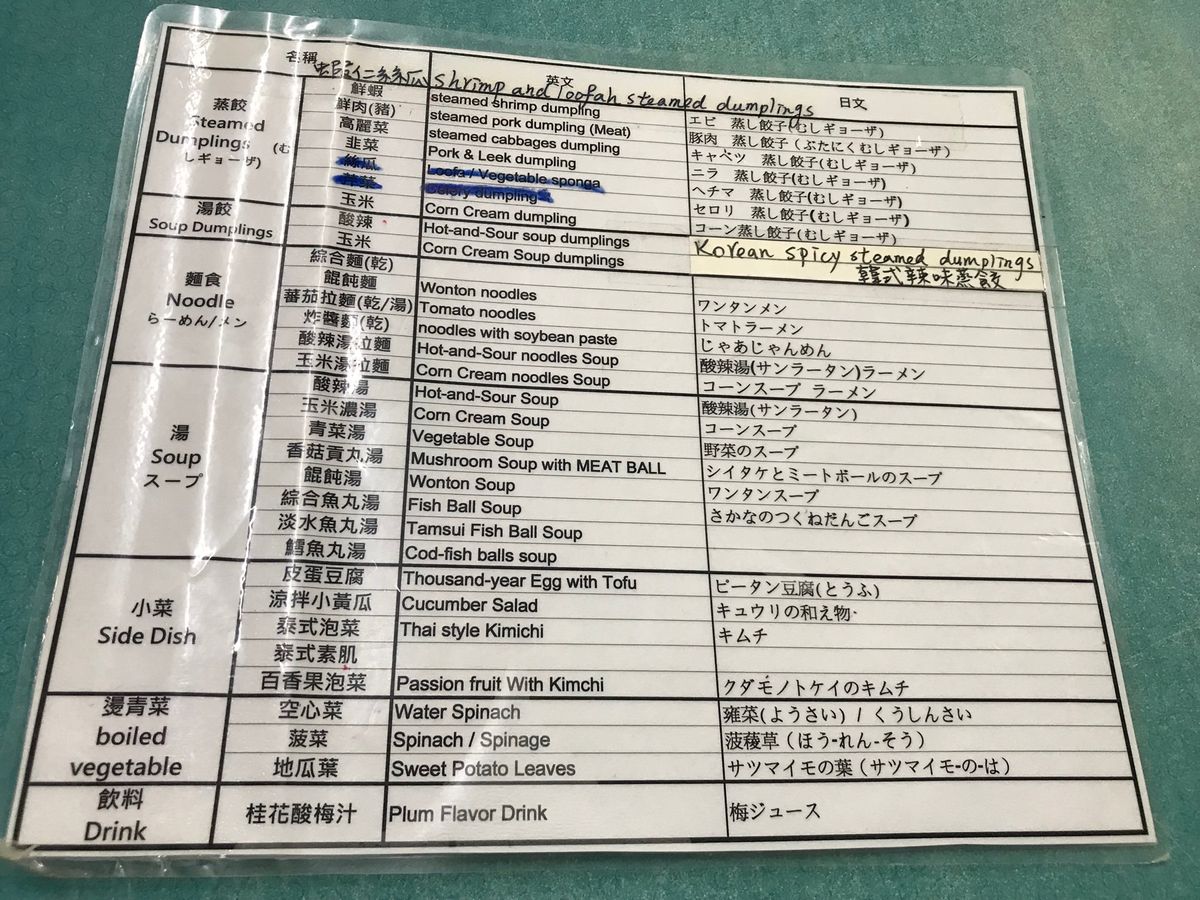 名稱 英文 日文
蝦仁絲瓜 shrimp and loofah steamed dumplings
蒸餃
Steamed
Dumplings (む
しギョーザ)
鮮蝦 steamed shrimp dumpling エビ 蒸し餃子(むしギョーザ)
鮮肉(豬) steamed pork dumpling (Meat) 豚肉 蒸し餃子 (ぶたにくむしギョーザ)
高麗菜 steamed cabbages dumpling キャベツ 蒸し餃子(むしギョーザ)
韭菜 Pork & Leek dumpling ニラ 蒸し餃子(むしギョーザ)
絲瓜 Loofa / Vegetable sponga ヘチマ 蒸し餃子(むしギョーザ)
芹菜 Celery dumpling セロリ 蒸し餃子(むしギョーザ)
玉米 Corn Cream dumpling コーン蒸し餃子(むしギョーザ)
湯餃
Soup Dumplings
酸辣 Hot-and-Sour soup dumplings
玉米 Corn Cream Soup dumplings
Korean spicy steamed dumplings
韓式辣味蒸餃
麵食
Noodle
らーめん/メン
綜合麵(乾)
餛飩麵 Wonton noodles ワンタンメン
蕃茄拉麵(乾/湯) Tomato noodles トマトラーメン
炸醬麵(乾) noodles with soybean paste じゃあじゃんめん
酸辣湯拉麵 Hot-and-Sour noodles Soup 酸辣湯(サンラータン)ラーメン
玉米湯拉麵 Corn Cream noodles Soup コーンスープ ラーメン
湯
Soup
スープ
酸辣湯 Hot-and-Sour Soup 酸辣湯(サンラータン)
玉米濃湯 Corn Cream Soup コーンスープ
青菜湯 Vegetable Soup 野菜のスープ
香菇貢丸湯 Mushroom Soup with MEAT BALL シイタケとミートボールのスープ
餛飩湯 Wonton Soup ワンタンスープ
綜合魚丸湯 Fish Ball Soup さかなのつくねだんごスープ
淡水魚丸湯 Tamsui Fish Ball Soup
鱈魚丸湯 Cod-fish balls soup
小菜
Side Dish
皮蛋豆腐 Thousand-year Egg with Tofu ピータン豆腐(とうふ)
涼拌小黃瓜 Cucumber Salad キュウリの和え物
泰式泡菜 Thai style Kimichi キムチ
泰式素肌
百香果泡菜 Passion fruit With Kimchi クダモノトケイのキムチ
燙青菜
boiled
vegetable
空心菜 Water Spinach 雍菜(ようさい) / くうしんさい
菠菜 Spinach / Spinage 菠薐草 (ほう-れん-そう)
地瓜葉 Sweet Potato Leaves サツマイモの葉 (サツマイモ-の-は)
飲料
Drink
桂花酸梅汁 Plum Flavor Drink 梅ジュース